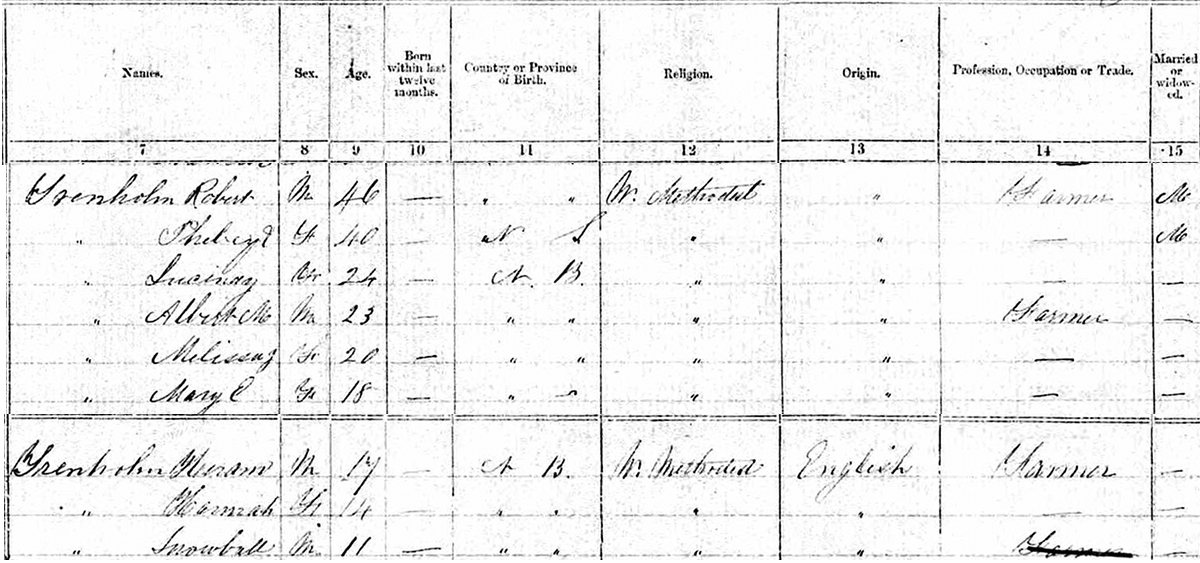 Names. Sex. Age. Born within last twelve months. Country or Province of Birth. Religion. Origin. Profession, Occupation or Trade. Married or widow-ed.
7 8 9 10 11 12 13 14 15
Trenholm Robert M 46 — " " W. Methodist " Farmer M
" F 40 — N S " " — M
" F 24 — N. B. " " — —
" Albert M M 23 — " " " " Farmer —
" F 20 — " " " " — —
" Mary C F 18 — " " " " — —
Trenholm Hiram M 17 — N B. W. Methodist English Farmer —
" Hannah F 14 — " " " " — —
" Snowball M 11 — " " " " Farmer —